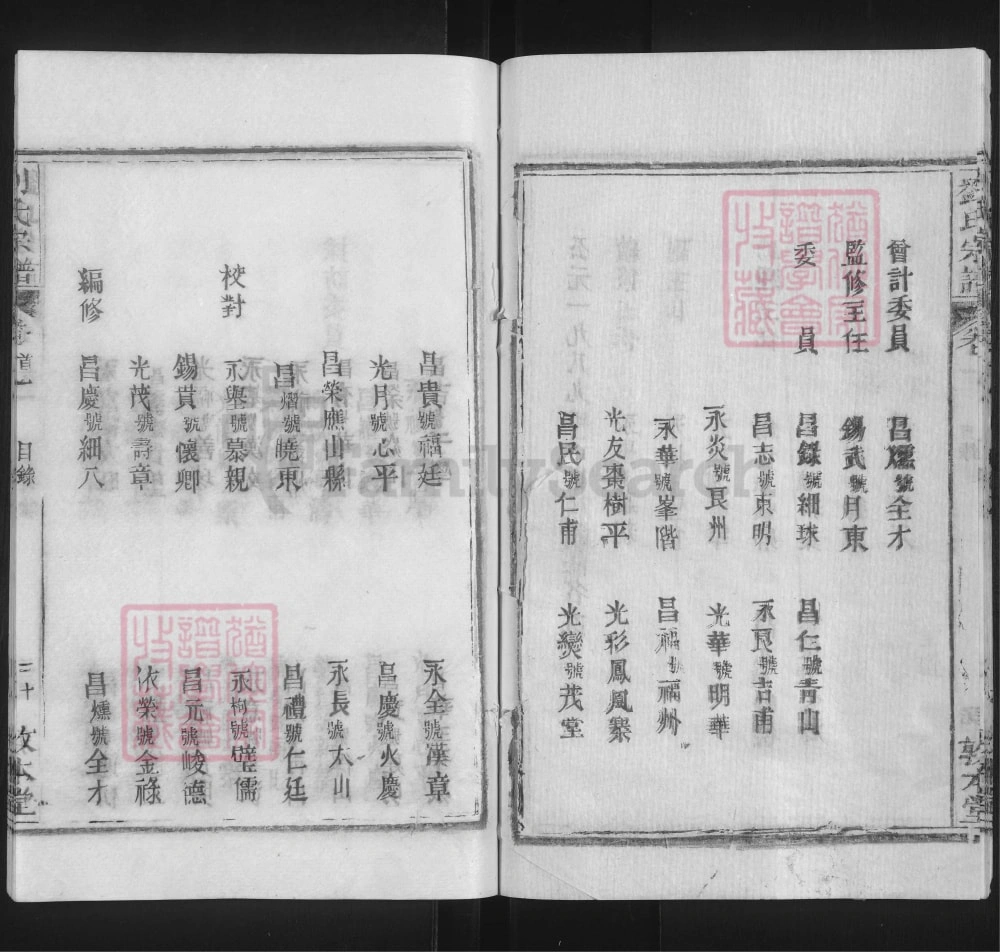 劉氏宗譜
會計委員 昌燻號全才
監修主任 錫武號月東
委員 昌錄號細珠 昌仁號青山
昌志號東明 永良號吉甫
永炎號良州 光華號明華
永華號峯階 昌福號福州
光友棗樹平 光彩鳳凰寨
昌民號仁甫 光爕號茂堂
敦本堂
昌貴號福廷 永全號漢章
光月號心平 昌慶號火慶
昌榮應山縣 永長號太山
昌熠號曉東 昌禮號仁廷
校對 永舉號慕親 永栒號璧儒
錫貰號懷卿 昌元號峻德
光茂號壽章 依榮號金祿
編修 昌慶號細八 昌燻號全才
劉氏宗譜
卷首一 目錄
三十
敦本堂
猶他家譜學會特藏
猶他家譜學會特藏
FamilySearch